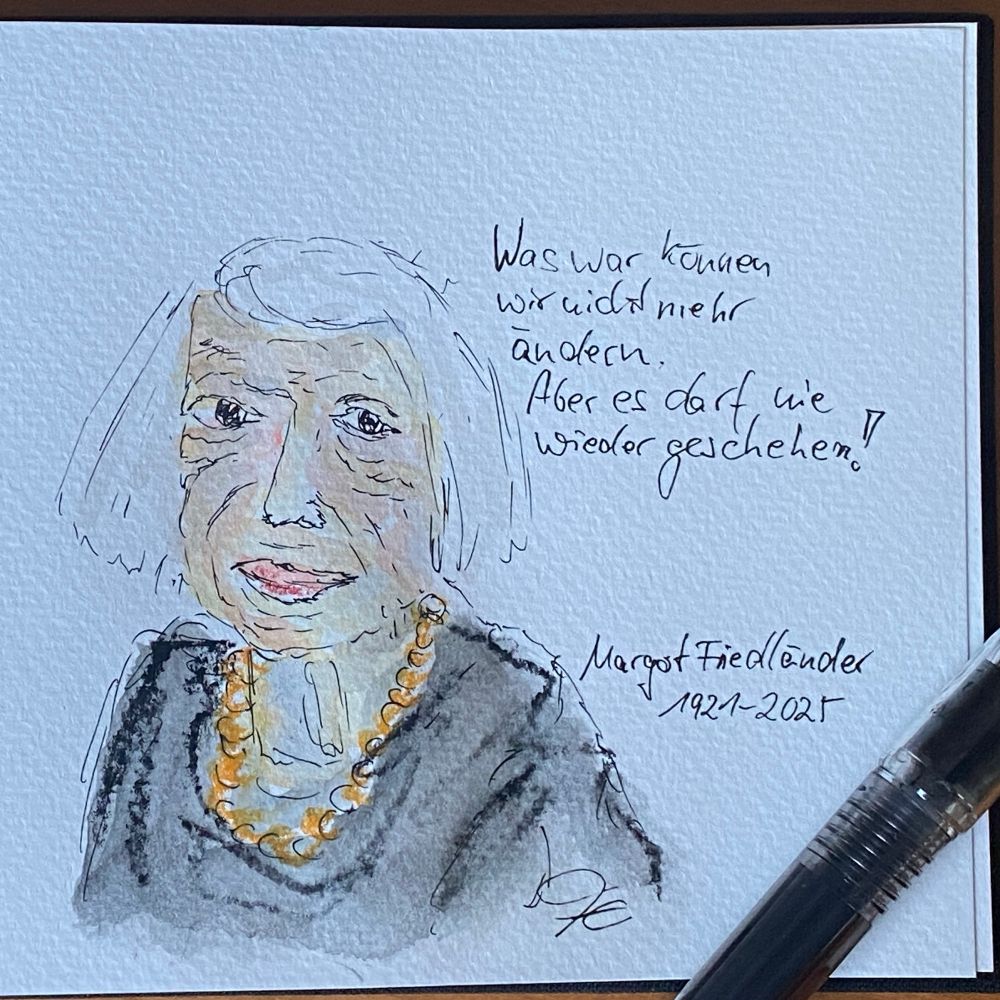 Was war können
wir nicht mehr
ändern.
Aber es darf nie
wieder geschehen!
Margot Friedländer
1921-2025